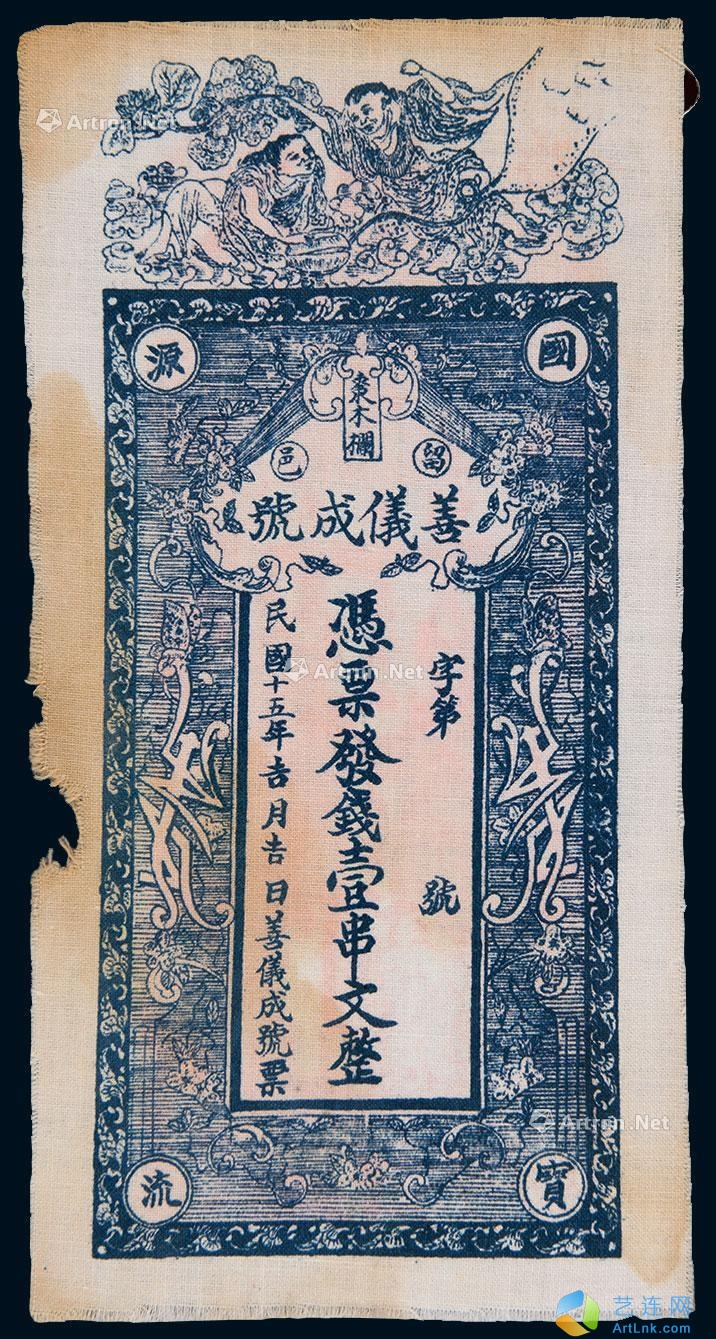 Artron.Net
國
源
木欄
留邑
善儀成號
字第 號
憑票發錢壹串文整
民國十五年吉月吉日善儀成號票
Artron.Net
Artron.Net
寶
流
艺连网
ArtLnk.com